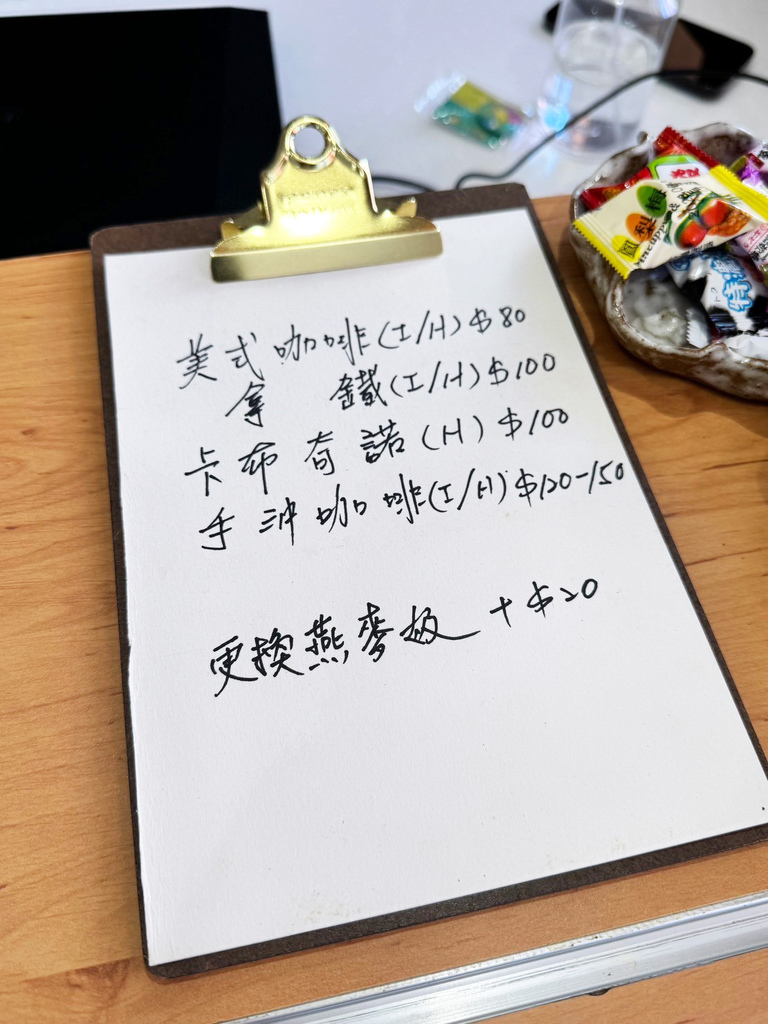 美式咖啡(I/H) $80
拿鐵(I/H) $100
卡布奇諾(H) $100
手沖咖啡(I/H) $120-150
更換燕麥扱 + $20
鳳梨